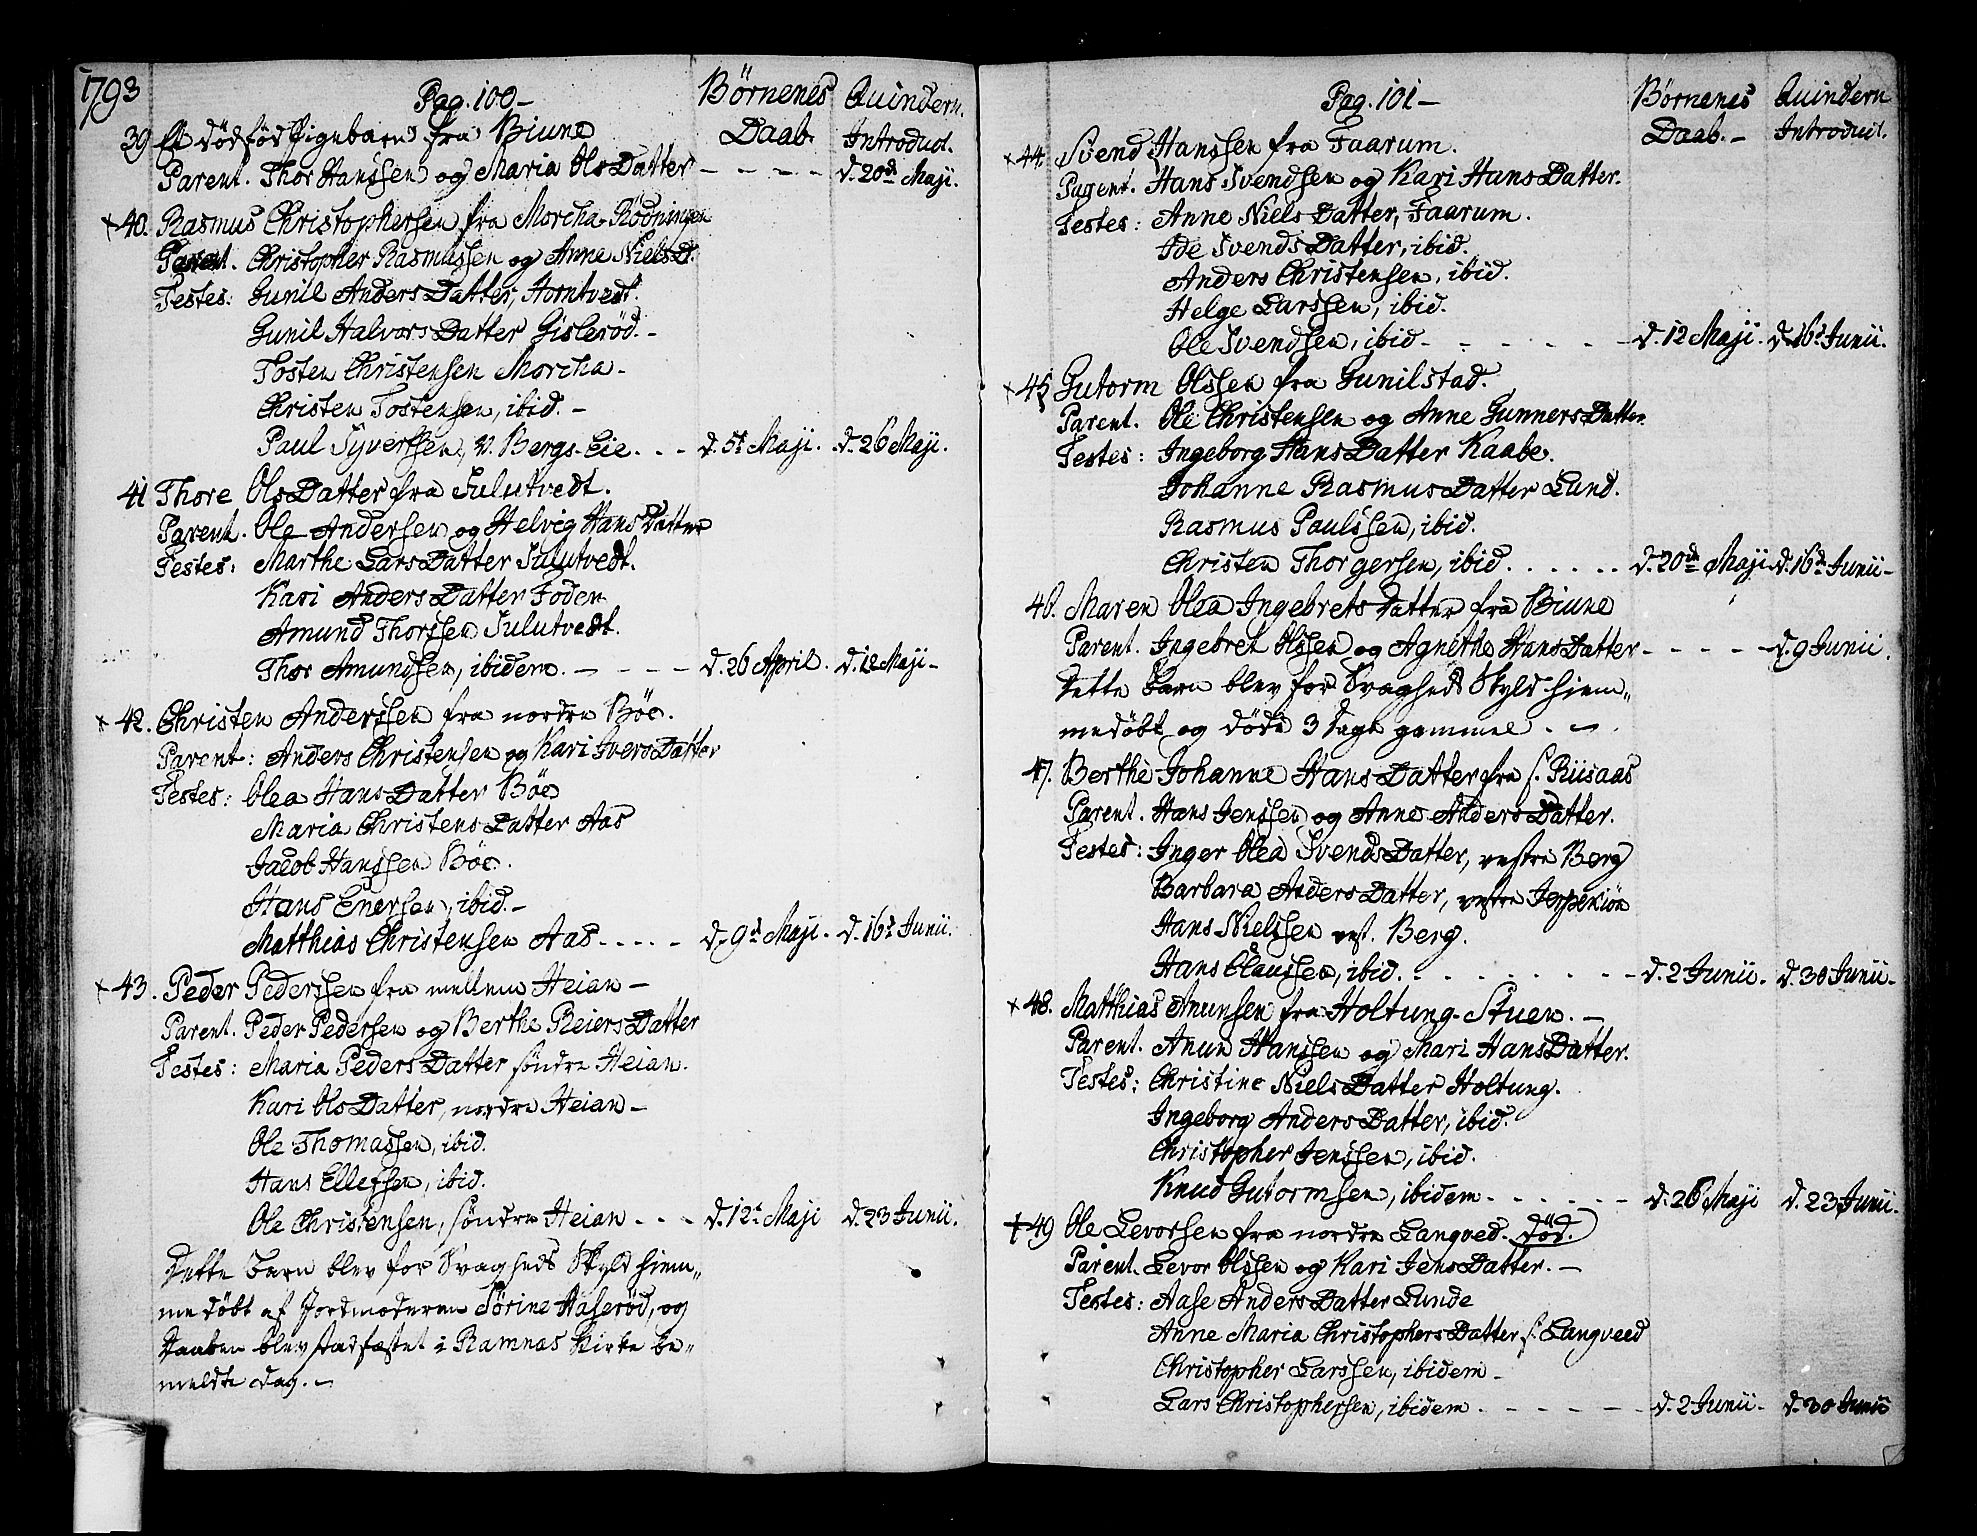 1793
Pag. 100 - Börnenes Daab. Quindern. Introduct.
39 Et dödföd Pigebarn fra Biune
Parent. Thor Hanssen og Maria OlsDatter - - - - d. 20de Maji.
+ 40. Rasmus Christophersen fra Morcha-Rödningen
Parent. Christopher Rasmussen og Anne NielsD.
Testes: Gunil AndersDatter, Horntvedt.
Gunil HalvorsDatter Gisleröd. -
Tosten Christensen Morcha -
Christen Tostensen, ibid. -
Paul Syvertsen, v. Bergs-Eie. . . d. 5t Maji. d. 26 Maji.
41 Thore OlsDatter fra Sulutvedt.
Parent. Ole Andersen og Helvig HansDatter
Testes: Marthe LarsDatter Sulutvedt.
Kari AndersDatter Foden
Amund Thorssen Sulutvedt.
Thor Amundsen, ibidem. - - - - d. 26 April. d. 12 Maji -
+ 42. Christen Anderssen fra nordre Böe.
Parent: Anders Christensen og Kari IversDatter
Testes: Olea HansDatter Böe
Maria ChristensDatter Aas
Jacob Hanssen Böe.
Hans Enersen, ibid. -
Matthias Christensen Aas - - - - - d. 9d Maji. d. 16d Junii.
+ 43. Peder Pederssen fra mellem Heian -
Parent. Peder Pedersen og Berthe ReiersDatter
Testes: Maria PedersDatter söndre Heian.
Kari OlsDatter, nordre Heian -
Ole Thomassen, ibid.
Hans Ellefsen, ibid.
Ole Christensen, söndre Heian - - - d. 12t Maji d. 23 Junii.
Dette Barn blev for Svagheds Skyld hiem„
me döbt af Jordmoderen Sörine Haseröd, og
Daaben blev stadfæstet i Ramnas Kirke be„
meldte Dag. -
Pag. 101 - Börnenes Daab. - Quindern Introduct.
+ 44. Svend Hanssen fra Faarum.
Parent. Hans Svendsen og Kari HansDatter.
Testes: Anne NielsDatter, Faarum.
Ide SvendsDatter, ibid.
Anders Christensen, ibid.
Helge Larssen, ibid.
Ole Svendsen, ibid - - - - - d. 12 Maji. d. 16d Junii.
+ 45 Gutorm Olssen fra Gunilstad.
Parent. Ole Christensen og Anne GunnersDatter
Testes: Ingeborg HansDatter Kaabe.
Johanne RasmusDatter Lund.
Rasmus Paulssen, ibid.
Christen Thorgersen, ibid. . . . . . d. 20de Maji d. 16d Junii -
46. Maren Olea IngebretsDatter fra Biune
Parent. Ingebret Olssen og Agnethe HansDatter - - - - - d. 9 Junii.
Dette Barn blev for Svagheds Skyld hiem„
medöbt og döde 3 Dage gammel. -
47. Berthe Johanne HansDatter fra s. Riisaas
Parent. Hans Jenssen og Anne AndersDatter.
Testes: Inger Olea SvendsDatter, vestre Berg
Barbara AndersDatter, vestre Jespeniön
Hans Nielssen vest. Berg.
Hans Claussen, ibid. - - - - - - d. 2 Junii. d. 30 Junii -
+ 48. Matthias Anunsen fra Holtung-Stuen. -
Parent. Anun Hanssen og Mari HansDatter.
Testes: Christine NielsDatter Holtung.
Ingeborg AndersDatter, ibid.
Christopher Jenssen, ibid.
Knud Gutormsen, ibidem - - - - - d. 26 Maji d. 23 Junii.
+ 49 Ole Levorsen fra nordre Langved. död.
Parent. Levor Olssen og Kari JensDatter. -
Testes: Aase AndersDatter Lunde
Anne Maria ChristophersDatter s. Langveed
Christopher Larssen, ibidem -
Lars Christophersen, ibidem - - - - - d. 2 Junii - d. 30 Junii